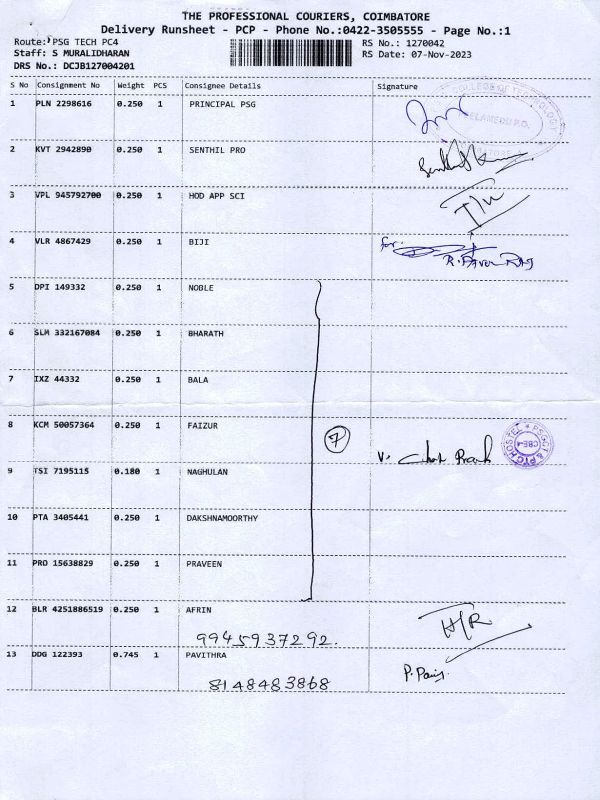 THE PROFESSIONAL COURIERS, COIMBATORE
Delivery Runsheet - PCP - Phone No.:0422-3505555 - Page No.:1
Route: PSG TECH PC4 RS No.: 1270042
Staff: S MURALIDHARAN RS Date: 07-Nov-2023
DRS No.: DCJB127004201
S No Consignment No Weight PCS Consignee Details Signature
1 PLN 2298616 0.250 1 PRINCIPAL PSG
COLLEGE OF TECHNOLOGY
PEELAMEDU P.O.
2 KVT 2942890 0.250 1 SENTHIL PRO
3 VPL 945792700 0.250 1 HOD APP SCI
4 VLR 4867429 0.250 1 BIJI for.
5 DPI 149332 0.250 1 NOBLE
6 SLM 332167084 0.250 1 BHARATH
7 IXZ 44332 0.250 1 BALA
8 KCM 50057364 0.250 1 FAIZUR
7
PSGCT & PTC HOSTEL
CBE-4
9 TSI 7195115 0.180 1 NAGHULAN
10 PTA 3405441 0.250 1 DAKSHNAMOORTHY
11 PRO 15638829 0.250 1 PRAVEEN
12 BLR 4251886519 0.250 1 AFRIN
9945937292.
13 DDG 122393 0.745 1 PAVITHRA
8148483868